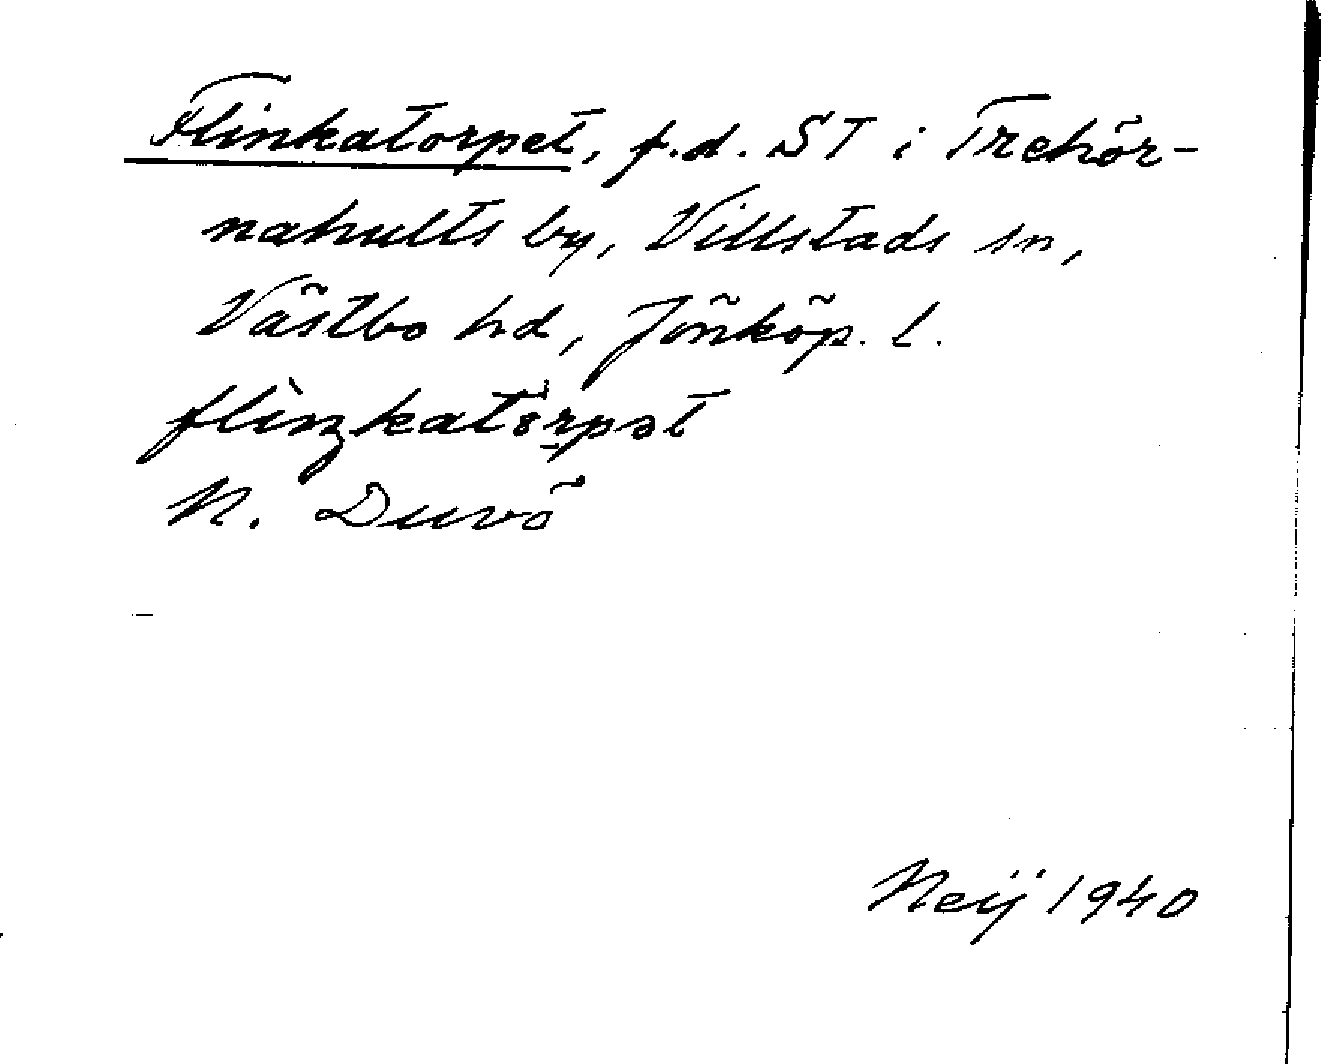 Flinkatorpet, f.d. ST i Trehör-
nahults by, Villstads sn,
Västbo hd, Jönköp. l.
flìŋkatȯrpət
N. Duvö
Neij 1940